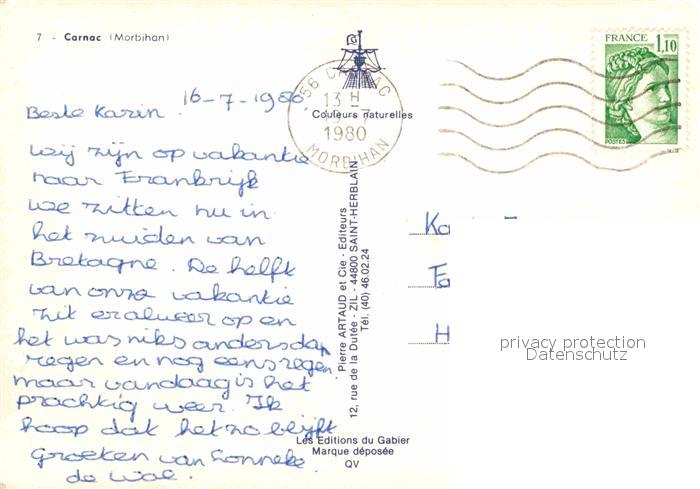 7 - Carnac (Morbihan)
16-7-1980
Beste Karin.
Wij zijn op vakantie
naar Frankrijk
we zitten nu in
het zuiden van
Bretagne. De helft
van onze vakantie
zit er alweer op en
het was niks anders dan
regen en nog eens regen
maar vandaag is het
prachtig weer. Ik
hoop dat het zo blijft
Groeten van Lonneke
de Wal.
56 CARNAC
13 H
-7
1980
MORBIHAN
Couleurs naturelles
Pierre ARTAUD et Cie - Editeurs
12, rue de la Dutée - ZIL - 44800 SAINT-HERBLAIN
Tél. (40) 46.02.24
Les Editions du Gabier
Marque déposée
QV
FRANCE
1,10
POSTES
Ka
Fa
H
privacy protection
Datenschutz